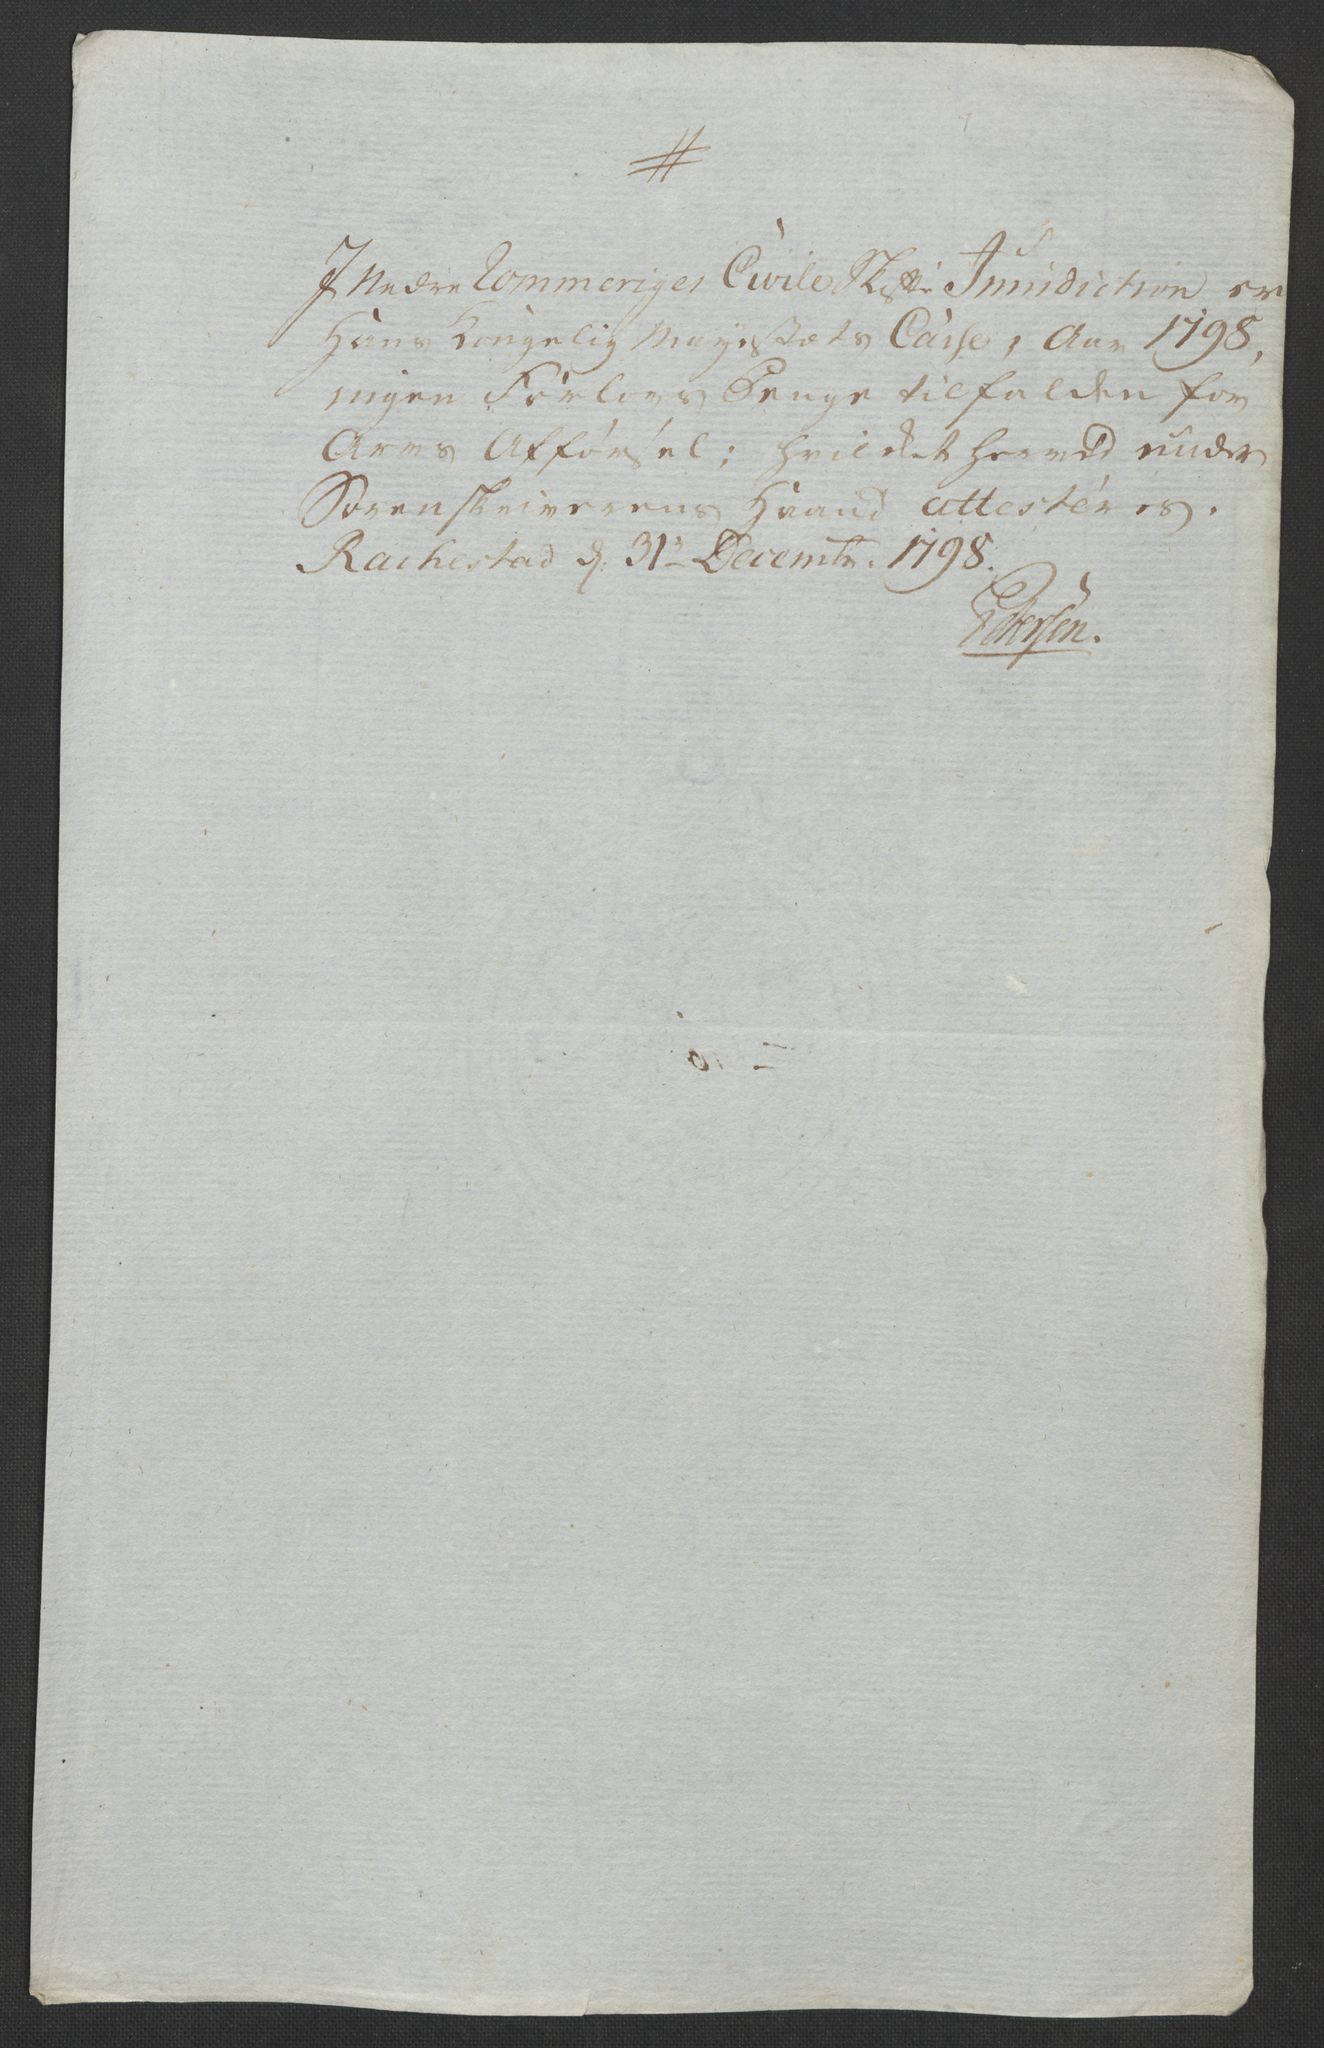 #
J Nedre Rommeriges Civile Skifte Jurisdiction er
Hans Kongelig Mayestæts Casse, Aar 1798,
ingen Forlovs Penge tilfalden for
Arvs Afførsel; hvilket herved under
Sorenskriverens Haand attesteres.
Rachestad d: 31t Decembr. 1798.
Petersen.